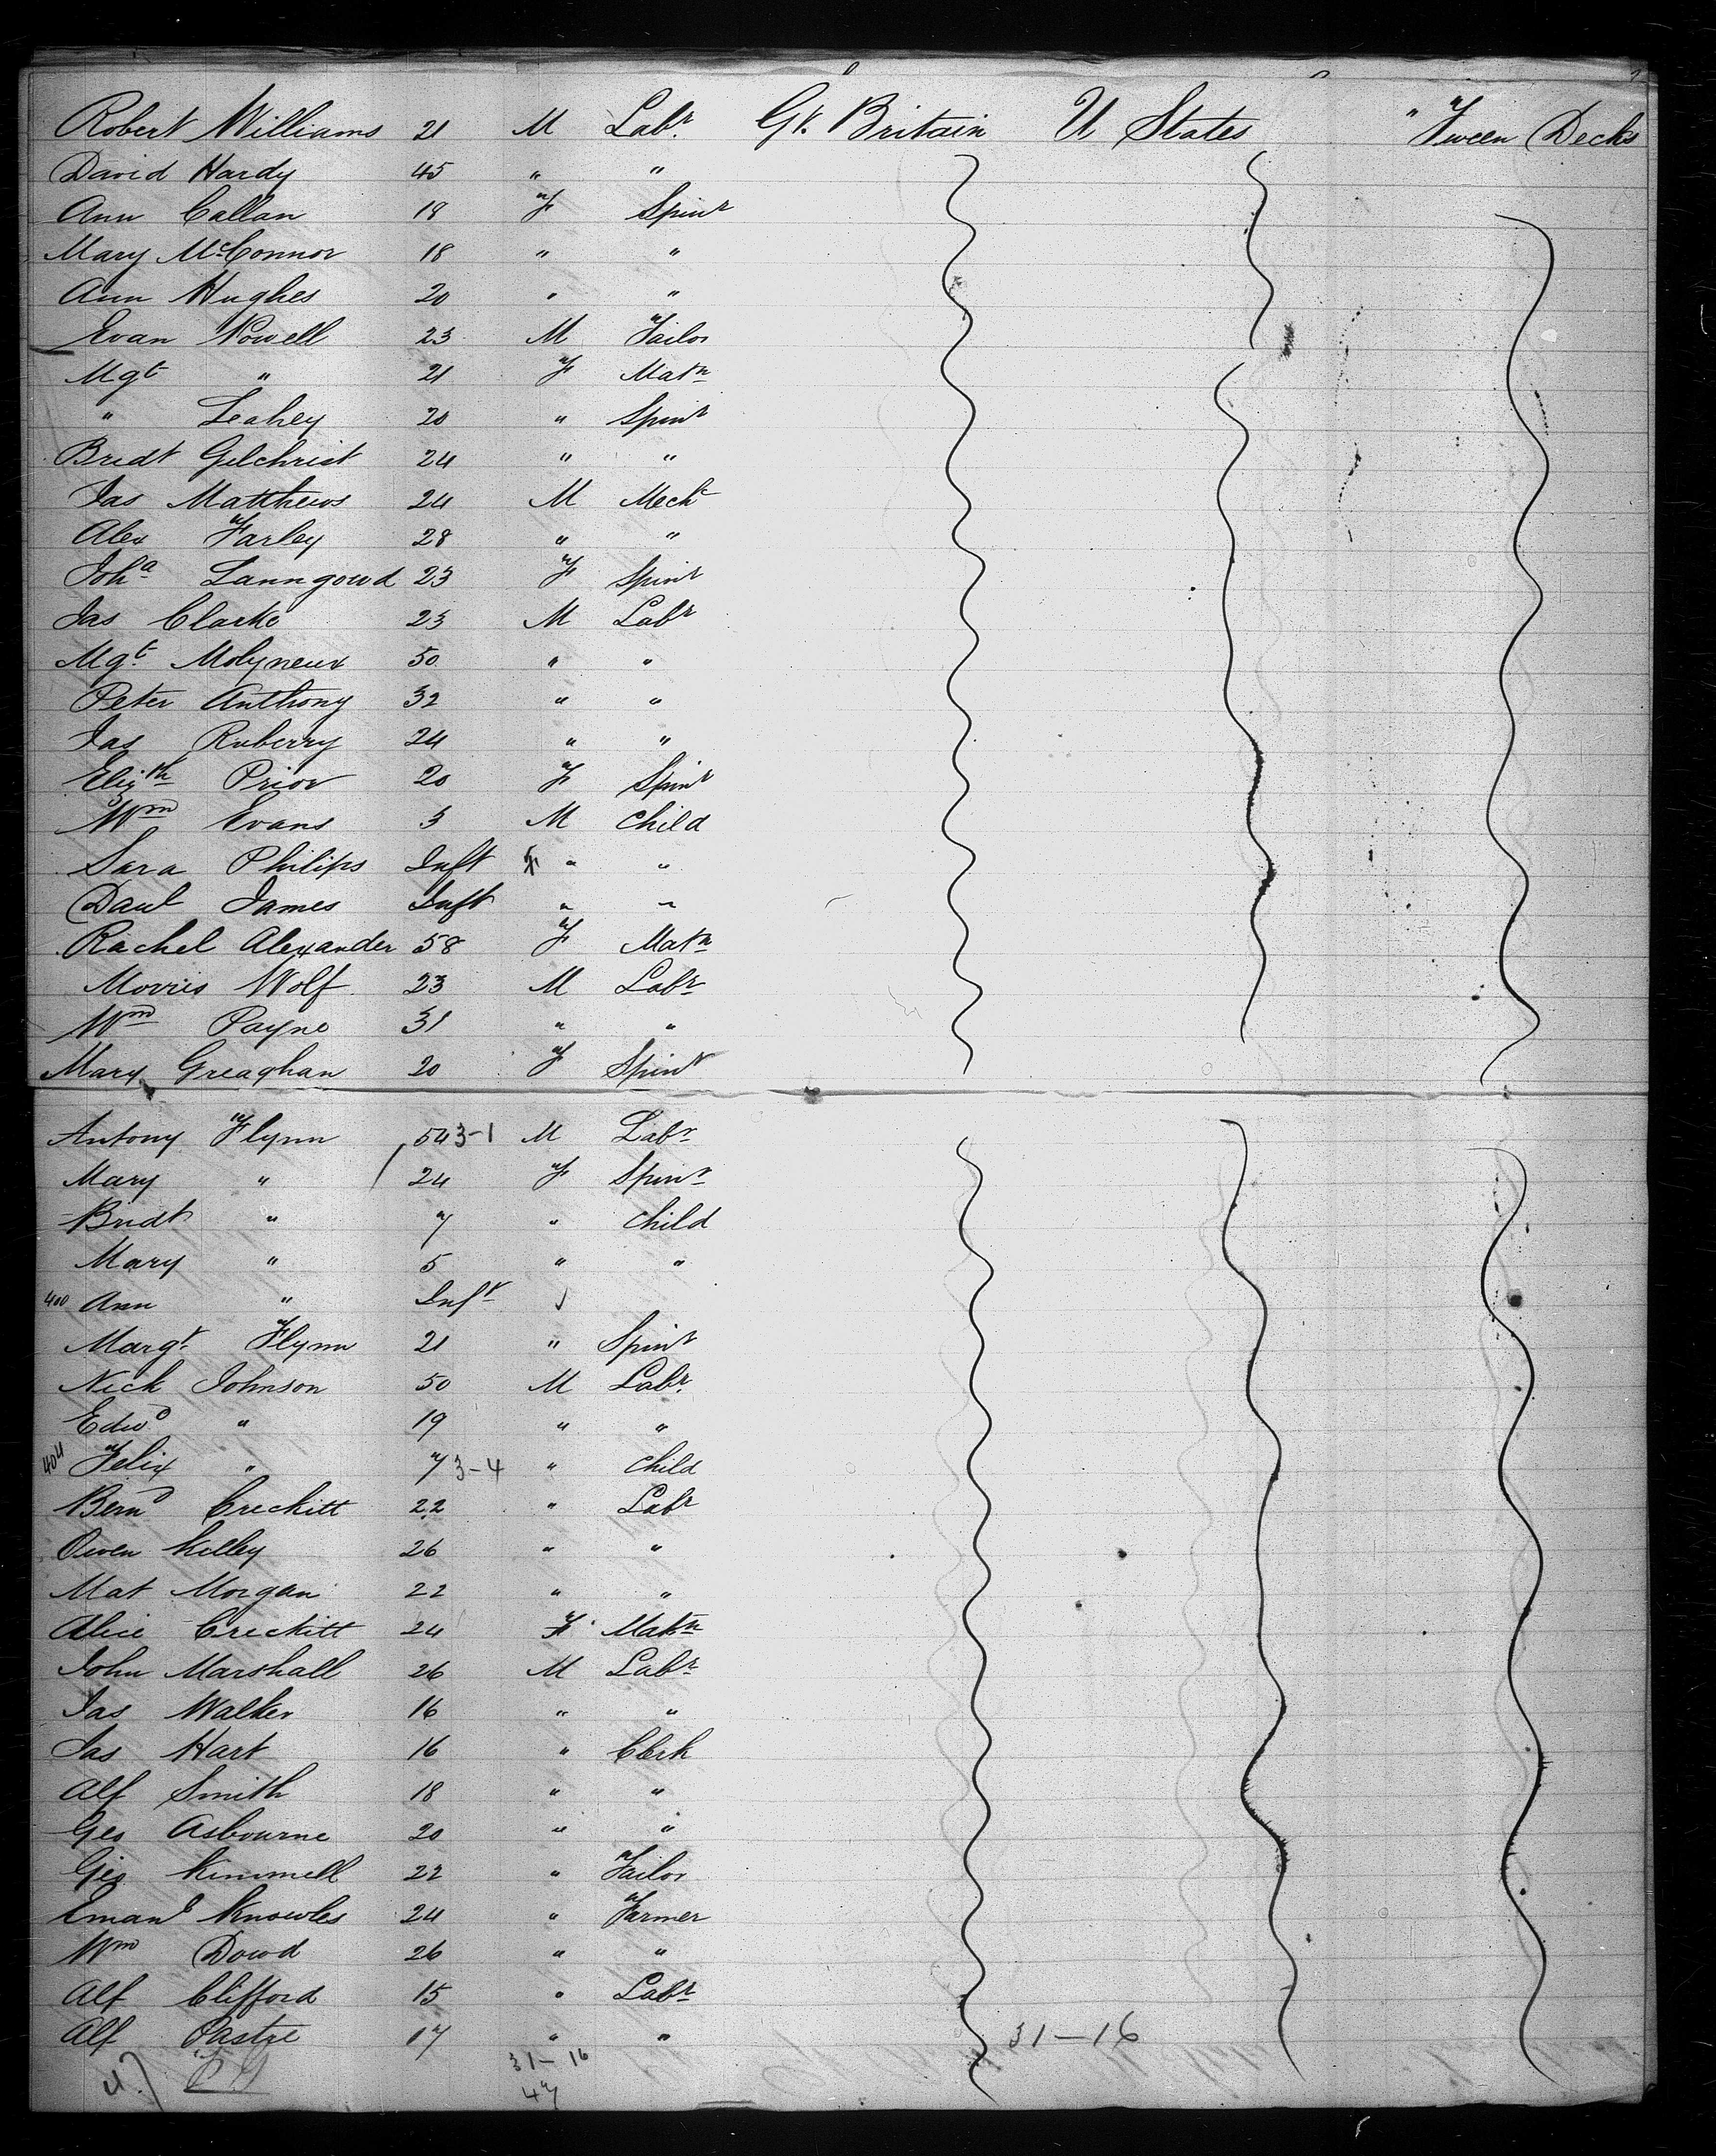 Robert Williams 21 M Labr. Gt. Britain U States Tween Decks
David Hardy 45 " "
Ann Callan 18 F Spinr
Mary McConnor 18 " "
Ann Hughes 20 " "
Evan Powell 23 M Tailor
Mgt " 21 F Matn
" Leahey 20 " Spinr
Bridt Gilchrist 24 " "
Jas Matthews 24 M Mechc
Alex Farley 28 " "
Joha Lanngowd 23 F Spinr
Jas Clarke 23 M Labr
Mgt. Molyneux 50 " "
Peter Anthony 32 " "
Jas Ruberry 24 " "
Elizth Prior 20 F Spinr
Wm Evans 3 M Child
Sara Philips Inft F " "
Danl James Inft " "
Rachel Alexander 58 F Matn
Morris Wolf 23 M Labr
Wm Payne 31 " "
Mary Greaghan 20 F Spinr
Antony Flynn 54 3-1 M Labr
Mary " 24 F Spinr
Bridt " 7 " Child
Mary " 5 " "
400 Ann " Inft
Margt Flynn 21 " Spinr
Nick Johnson 50 M Labr.
Edwd " 19 " "
404 Felix " 7 3-4 " Child
Bernd Creckitt 22 " Labr
Owen Kelley 26 " "
Mat Morgan 22 " "
Alice Creckitt 24 F Matn
John Marshall 26 M Labr
Jas Walker 16 " "
Jas Hart 16 " Clerk
Alf Smith 18 " "
Geo Asbourne 20 " "
Geo Kimmell 22 " Tailor
Emanl Knowles 24 " Farmer
Wm Dowd 26 " "
Alf Clifford 15 " Labr
Alf Pastre 17 " " 31-16
31-16
47